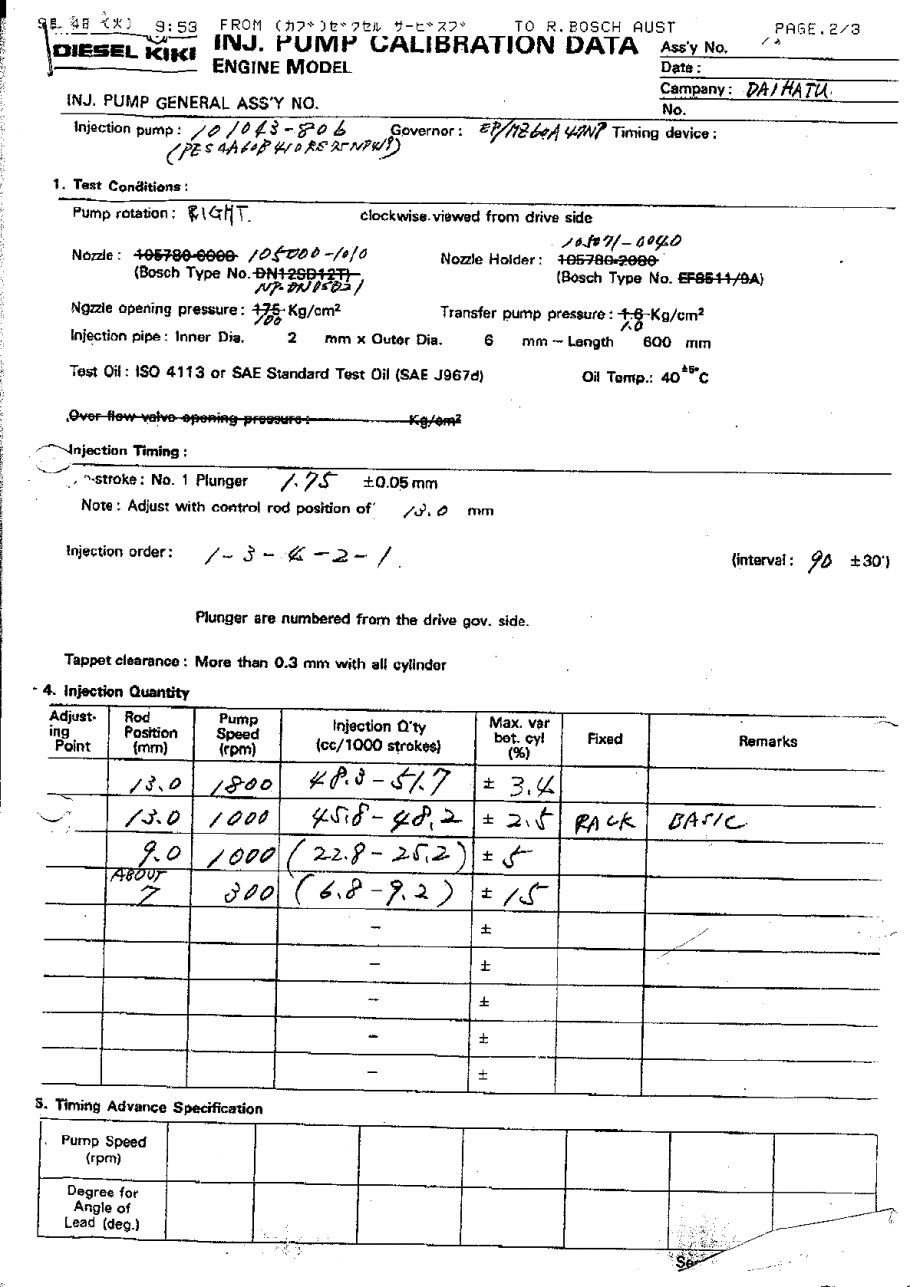 9月 4日 (火) 9:53 FROM (カブ)ゼクセル サービスブ TO R.BOSCH AUST PAGE.2/3
DIESEL KIKI INJ. PUMP CALIBRATION DATA Ass'y No.
ENGINE MODEL Date :
Campany : DAIHATU
INJ. PUMP GENERAL ASS'Y NO. No.
Injection pump : 101043-806 Governor : Timing device :
1. Test Conditions :
Pump rotation : RIGHT. clockwise viewed from drive side
105071-0040
Nozzle : 105780-0000 105000-1010 Nozzle Holder : 105780-2080
(Bosch Type No. DN12SD12T) (Bosch Type No. EF8511/9A)
NP-DN0SD21
Nozzle opening pressure : 175 Kg/cm² Transfer pump pressure : 1.6 Kg/cm²
100 1.0
Injection pipe : Inner Dia. 2 mm x Outer Dia. 6 mm – Length 600 mm
Test Oil : ISO 4113 or SAE Standard Test Oil (SAE J967d) Oil Temp.: 40 ±5° C
Over flow valve opening pressure : Kg/cm²
Injection Timing :
-stroke : No. 1 Plunger 1.75 ±0.05 mm
Note : Adjust with control rod position of 13.0 mm
Injection order : 1-3-4-2-1 (interval : 90 ±30')
Plunger are numbered from the drive gov. side.
Tappet clearance : More than 0.3 mm with all cylinder
4. Injection Quantity
Adjusting Point Rod Position (mm) Pump Speed (rpm) Injection Q'ty (cc/1000 strokes) Max. var bet. cyl (%) Fixed Remarks
13.0 1800 48.3-51.7 ± 3.4
13.0 1000 45.8-48.2 ± 2.5 RACK BASIC
9.0 1000 (22.8-25.2) ± 5
ABOUT 7 300 (6.8-9.2) ± 15
– ±
– ±
– ±
– ±
– ±
5. Timing Advance Specification
Pump Speed (rpm)
Degree for Angle of Lead (deg.)